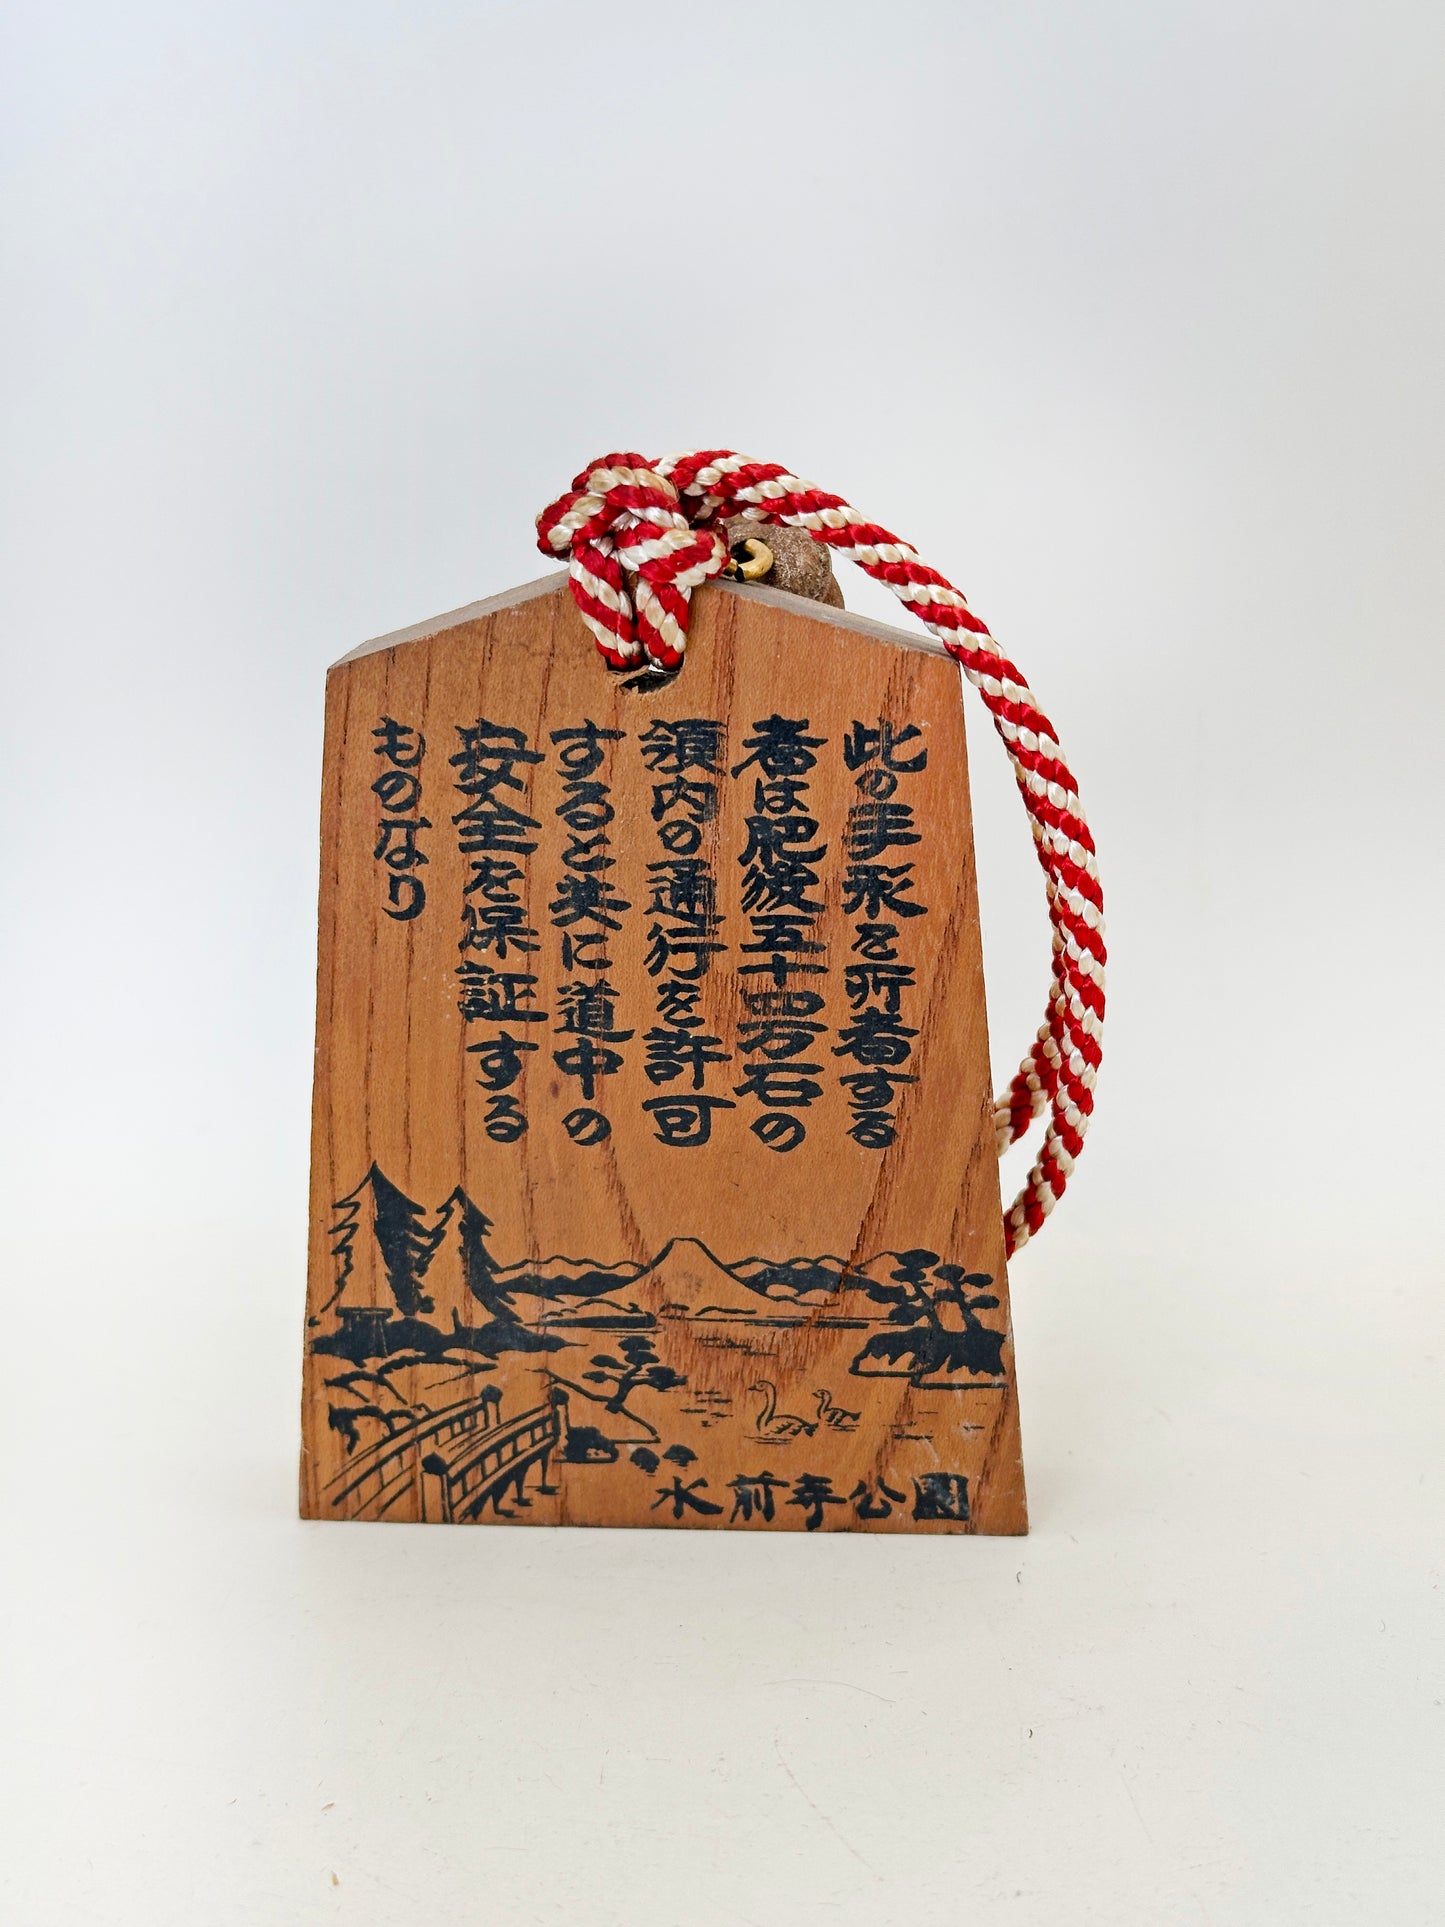 此の手形を所有する
者は肥後五十四万石の
領内の通行を許可
すると共に道中の
安全を保証する
ものなり
水前寺公園